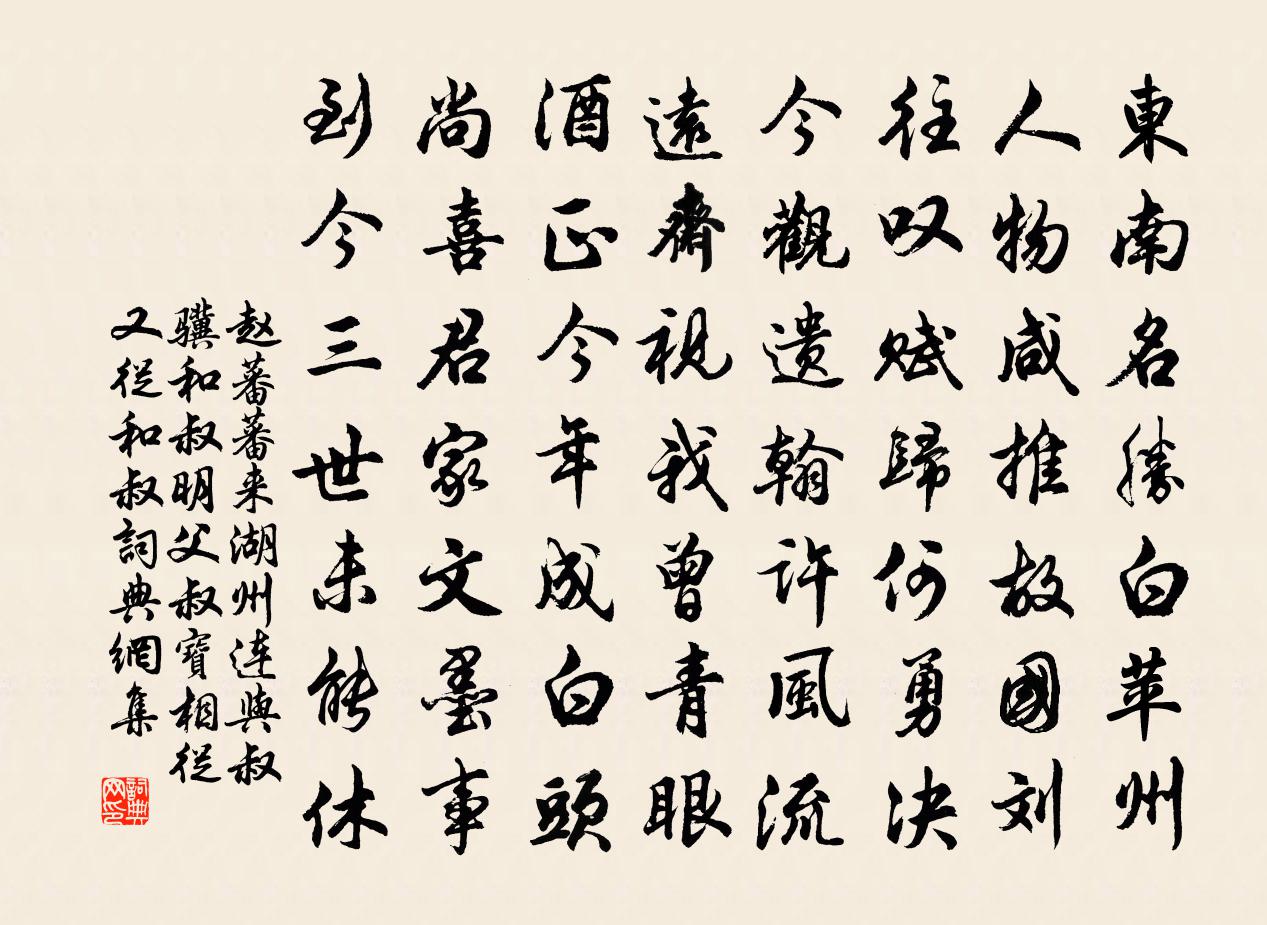 東南名勝白苹州
人物咸推故國刘
往叹赋歸何勇决
今觀遗翰許風流
遠齋視我曾青眼
酒正今年成白頭
尚喜君家文墨事
到今三世未能休
赵蕃蕃来湖州连與叔
骥和叔明父叔寶相從
又從和叔詞典網集
詞典网印